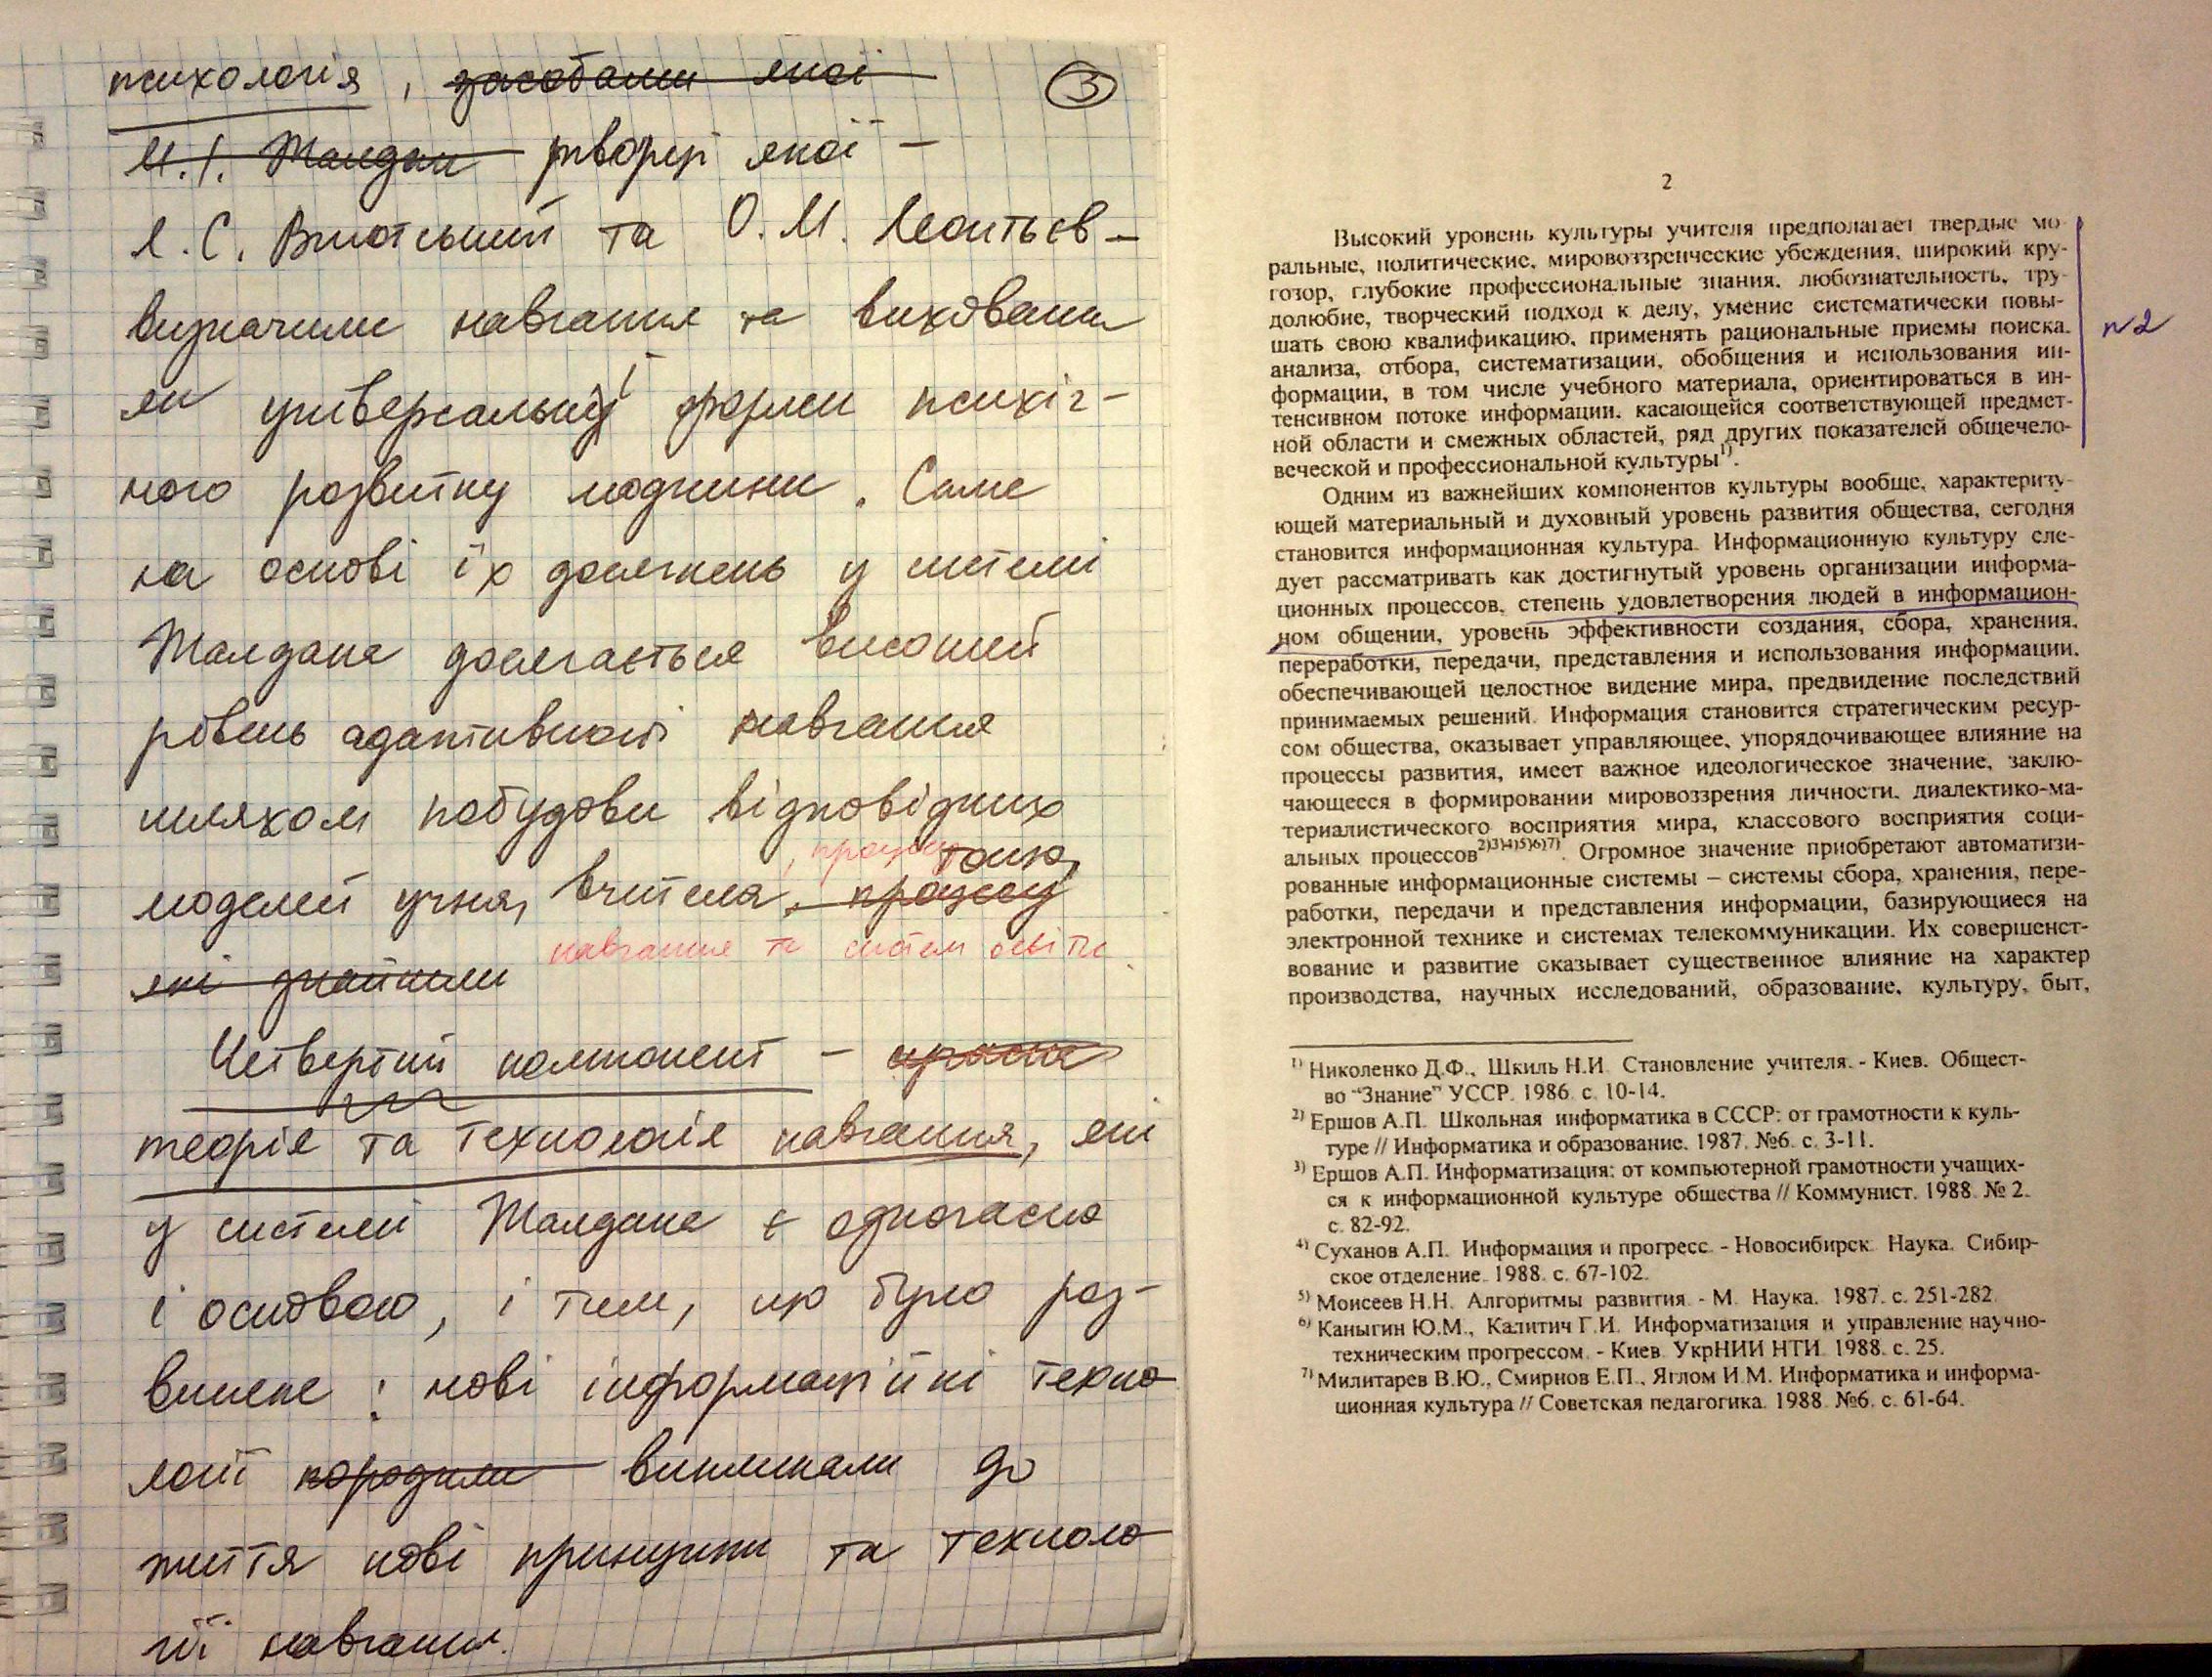 психологія, засобами якої
③
М.І. Жалдак творці якої –
Л.С. Виготський та О.М. Леонтьєв –
визначили навчання та виховання
як універсальні форми психіч-
ного розвитку людини. Саме
на основі їх досягнень у системі
Жалдака досягається високий
рівень адаптивності навчання
шляхом побудови відповідних
, процесу
тощо,
моделей учня, вчителя, процесу
навчання та систем освіти
які знайшли
Четвертий компонент –
теорія та технологія навчання, які
у системі Жалдака є одночасно
і основою, і тим, що було роз-
винене: нові інформаційні техно
логії породили викликали до
життя нові принципи та техноло
гії навчання.
2
Высокий уровень культуры учителя предполагает твердые мо-
ральные, политические, мировоззренческие убеждения, широкий кру-
гозор, глубокие профессиональные знания, любознательность, тру-
долюбие, творческий подход к делу, умение систематически повы-
шать свою квалификацию, применять рациональные приемы поиска,
анализа, отбора, систематизации, обобщения и использования ин-
формации, в том числе учебного материала, ориентироваться в ин-
тенсивном потоке информации, касающейся соответствующей предмет-
ной области и смежных областей, ряд других показателей общечело-
веческой и профессиональной культуры¹⁾.
n2
Одним из важнейших компонентов культуры вообще, характеризу-
ющей материальный и духовный уровень развития общества, сегодня
становится информационная культура. Информационную культуру сле-
дует рассматривать как достигнутый уровень организации информа-
ционных процессов, степень удовлетворения людей в информацион-
ном общении, уровень эффективности создания, сбора, хранения,
переработки, передачи, представления и использования информации,
обеспечивающей целостное видение мира, предвидение последствий
принимаемых решений. Информация становится стратегическим ресур-
сом общества, оказывает управляющее, упорядочивающее влияние на
процессы развития, имеет важное идеологическое значение, заклю-
чающееся в формировании мировоззрения личности, диалектико-ма-
териалистического восприятия мира, классового восприятия соци-
альных процессов²⁾³⁾⁴⁾⁵⁾⁶⁾⁷⁾. Огромное значение приобретают автоматизи-
рованные информационные системы – системы сбора, хранения, пере-
работки, передачи и представления информации, базирующиеся на
электронной технике и системах телекоммуникации. Их совершенст-
вование и развитие оказывает существенное влияние на характер
производства, научных исследований, образование, культуру, быт,
¹⁾ Николенко Д.Ф., Шкиль Н.И. Становление учителя. - Киев. Общест-
во "Знание" УССР. 1986. с. 10-14.
²⁾ Ершов А.П. Школьная информатика в СССР: от грамотности к куль-
туре // Информатика и образование. 1987. №6. с. 3-11.
³⁾ Ершов А.П. Информатизация: от компьютерной грамотности учащих-
ся к информационной культуре общества // Коммунист. 1988. № 2.
с. 82-92.
⁴⁾ Суханов А.П. Информация и прогресс. - Новосибирск. Наука. Сибир-
ское отделение. 1988. с. 67-102.
⁵⁾ Моисеев Н.Н. Алгоритмы развития. - М. Наука. 1987. с. 251-282.
⁶⁾ Каныгин Ю.М., Калитич Г.И. Информатизация и управление научно-
техническим прогрессом. - Киев. УкрНИИ НТИ. 1988. с. 25.
⁷⁾ Милитарев В.Ю., Смирнов Е.П., Яглом И.М. Информатика и информа-
ционная культура // Советская педагогика. 1988. №6. с. 61-64.